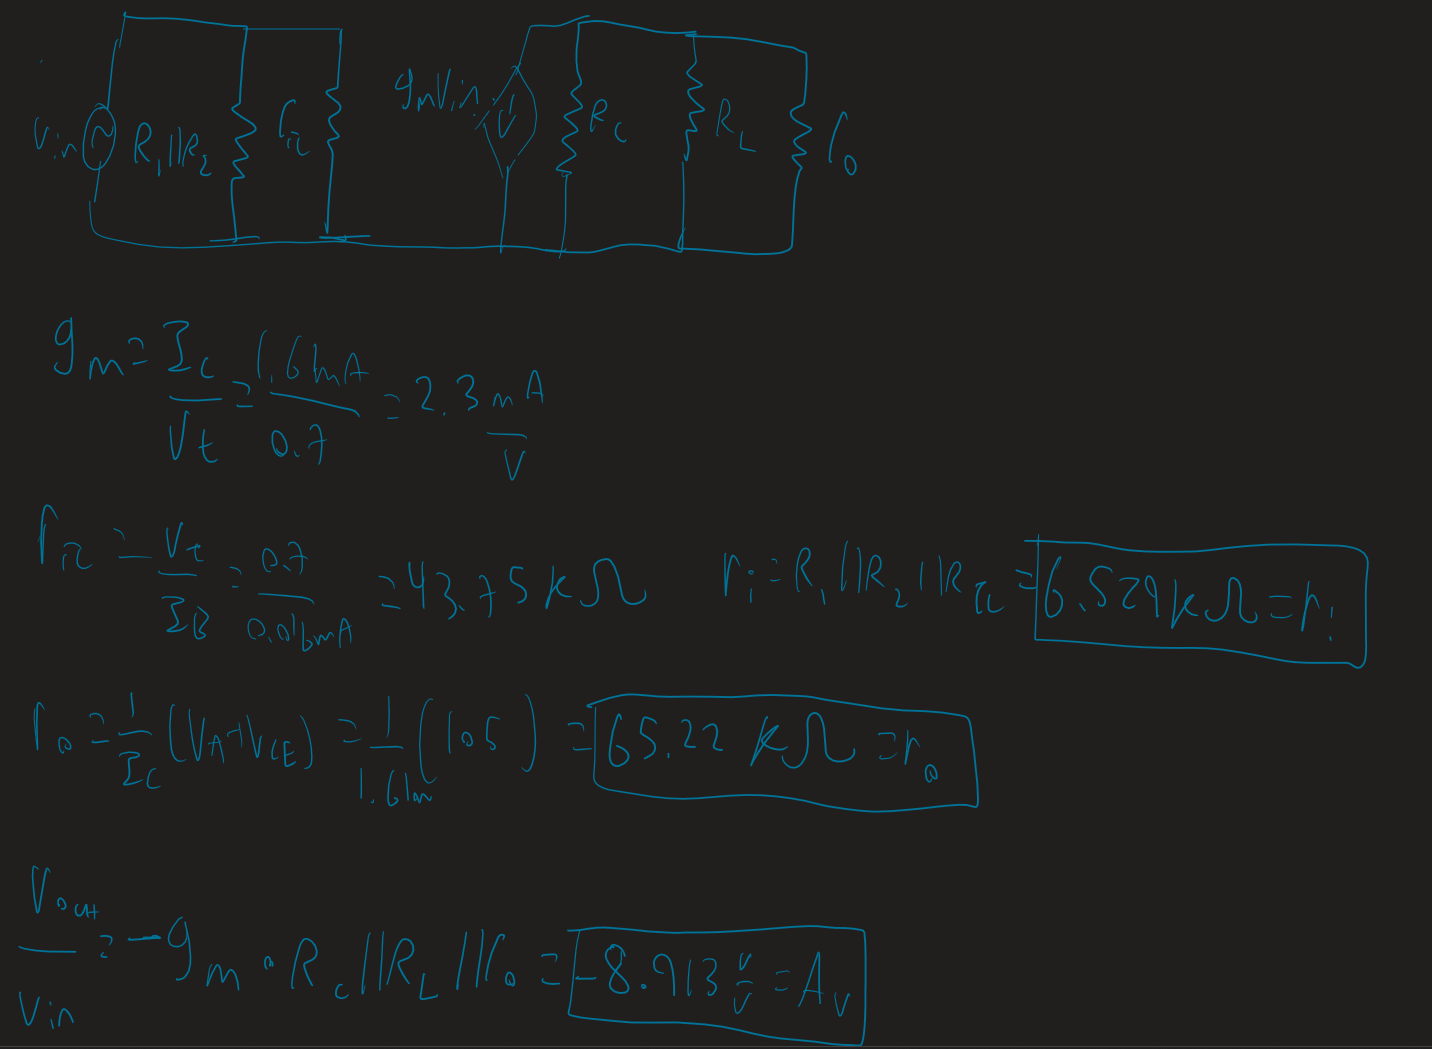 Vin R1||R2 rπ gmVin RC RL ro
gm = IC/Vt = 1.61mA/0.7 = 2.3 mA/V
rπ = Vt/IB = 0.7/0.016mA = 43.75kΩ ri = R1||R2||Rπ = 6.529kΩ = ri
ro = 1/IC (VA+VCE) = 1/1.61m (105) = 65.22 kΩ = ro
Vout/Vin = -gm • RC||RL||ro = -8.913 V/V = AV